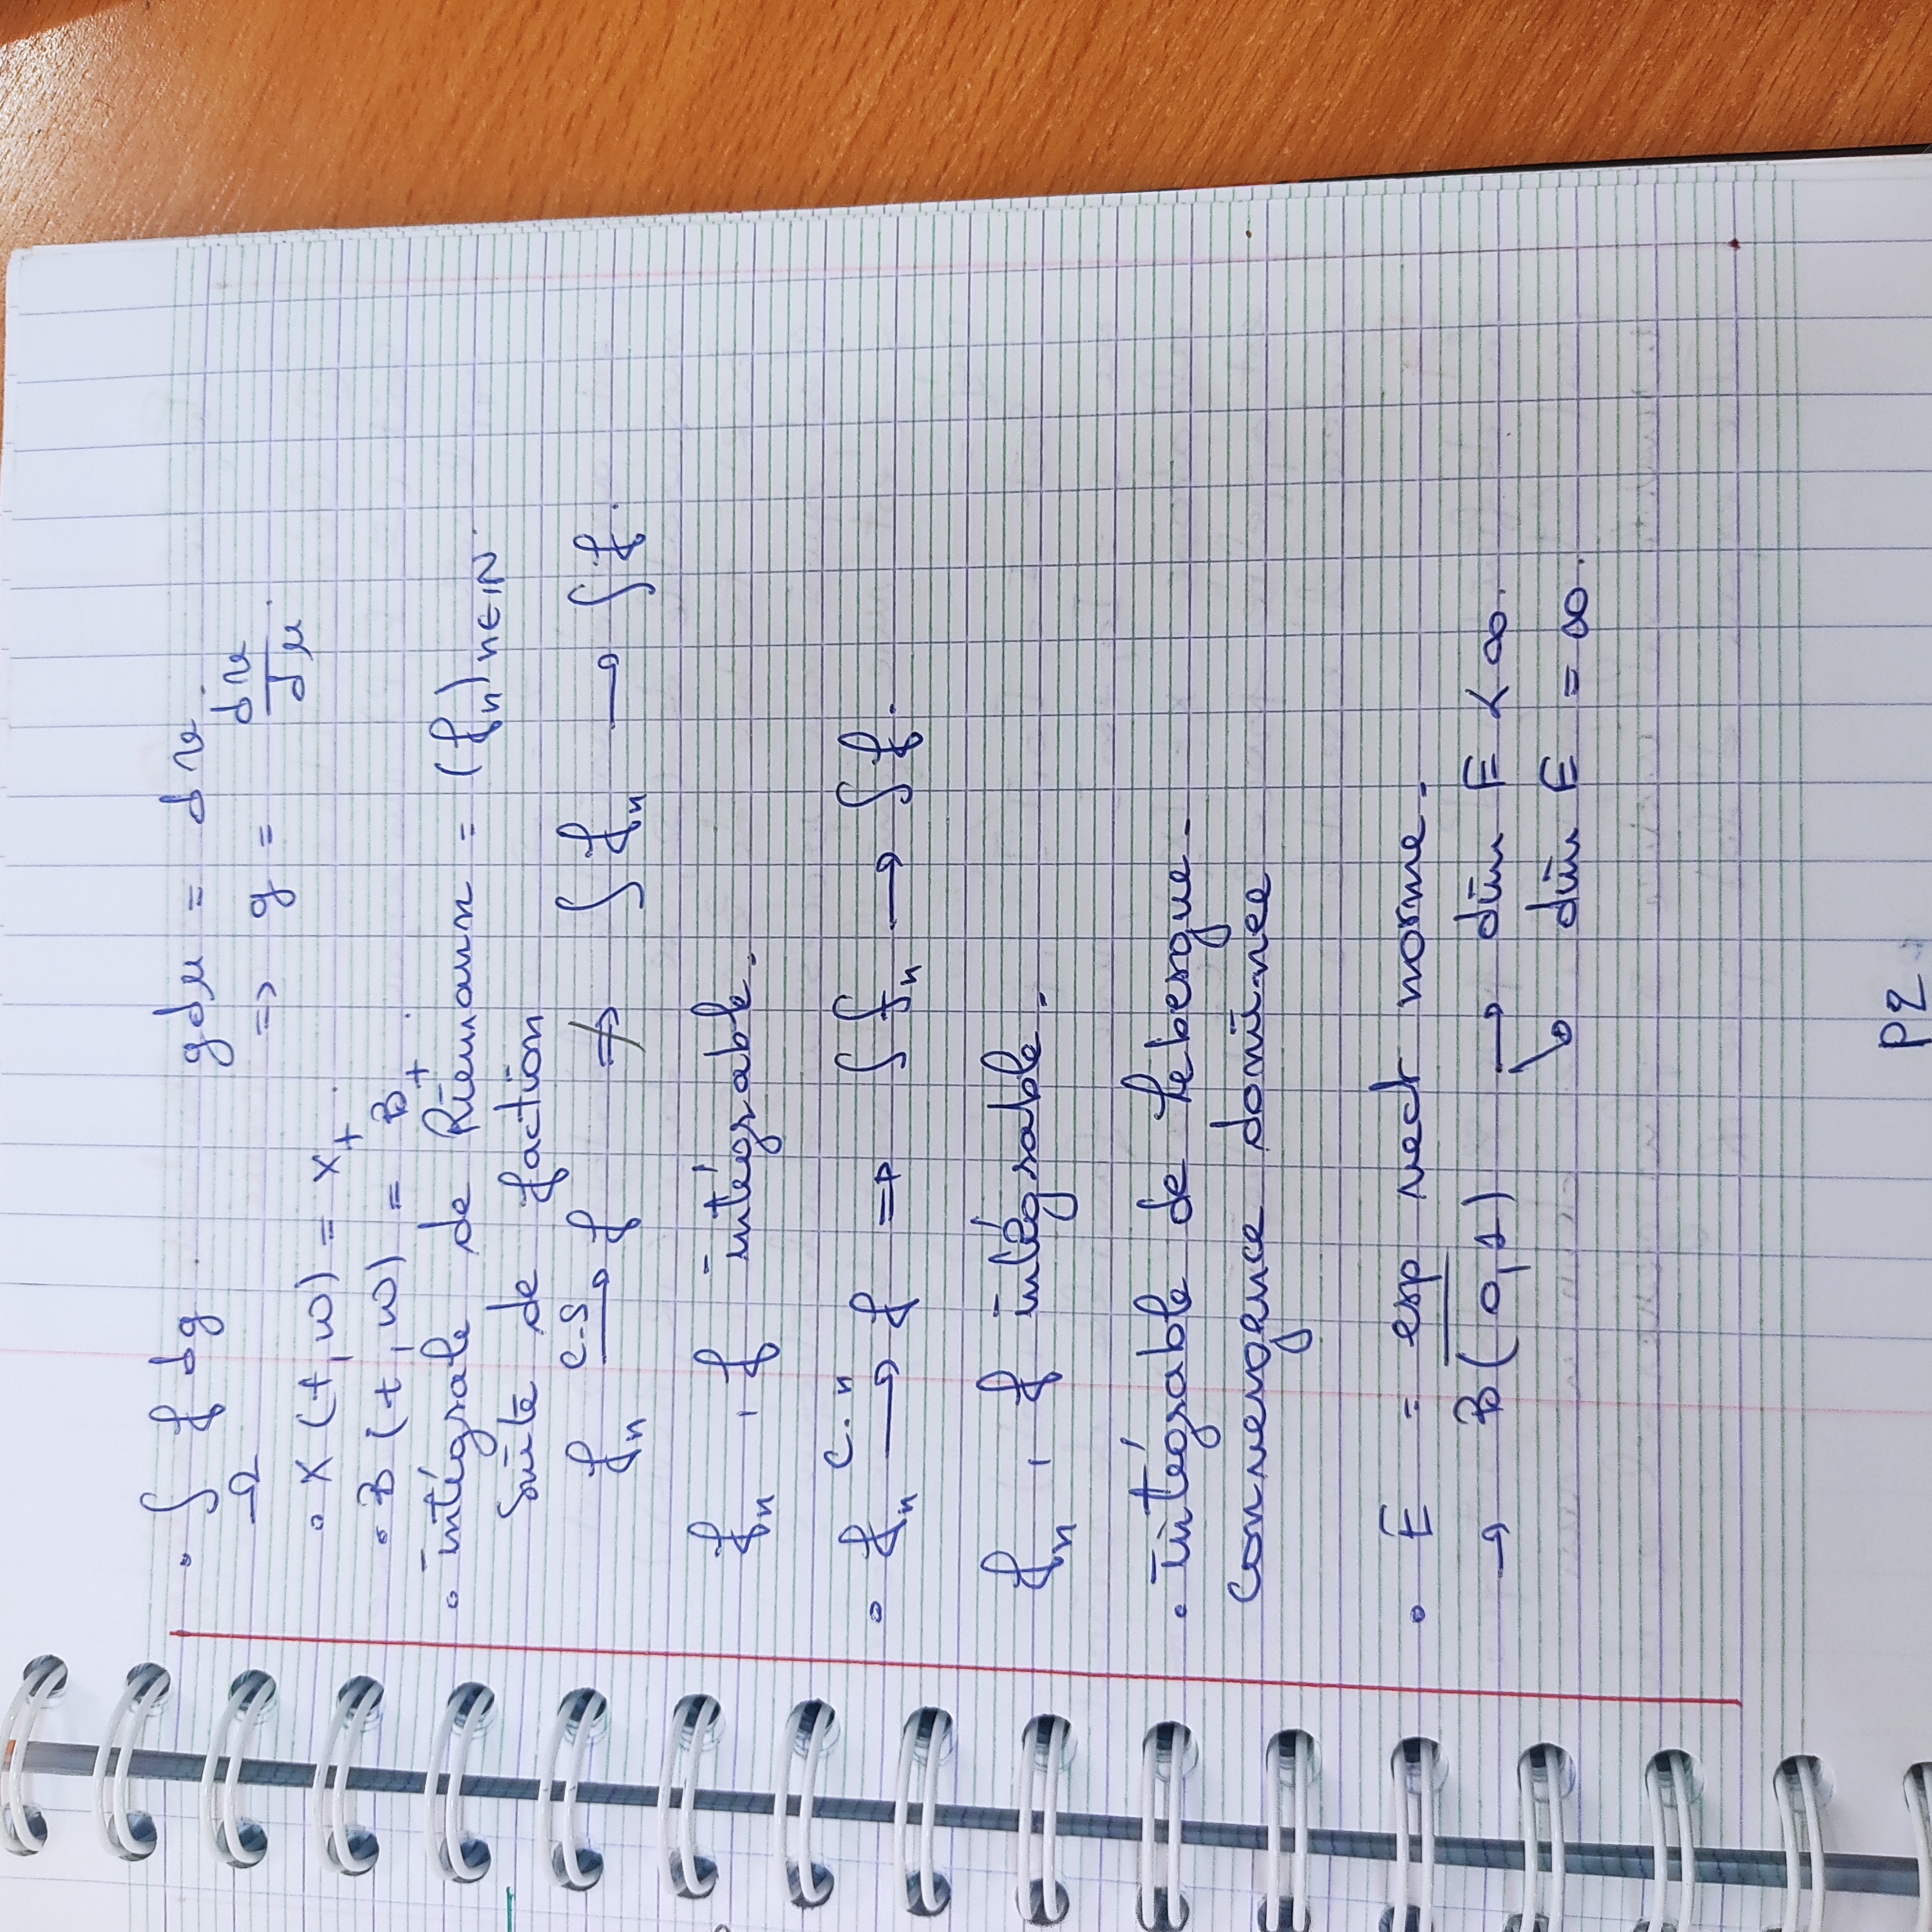 • ∫_Ω f dg . g dμ = dν .
=> g = dν/dμ .
• X (t, ω) = X_t .
• B (t, ω) = B_t .
• intégrale de Riemann = (f_n)_{n∈IN} .
Suite de faction
f_n —c.s→ f ⇏ ∫ f_n → ∫ f .
f_n , f intégrable.
• f_n —c.n→ f => ∫ f_n → ∫ f .
f_n , f intégrable.
• intégrable de Lebesgue.
convergence dominee
• E = esp vect norme.
→ B(0,1) → dim E < ∞.
↘ dim E = ∞.
P2